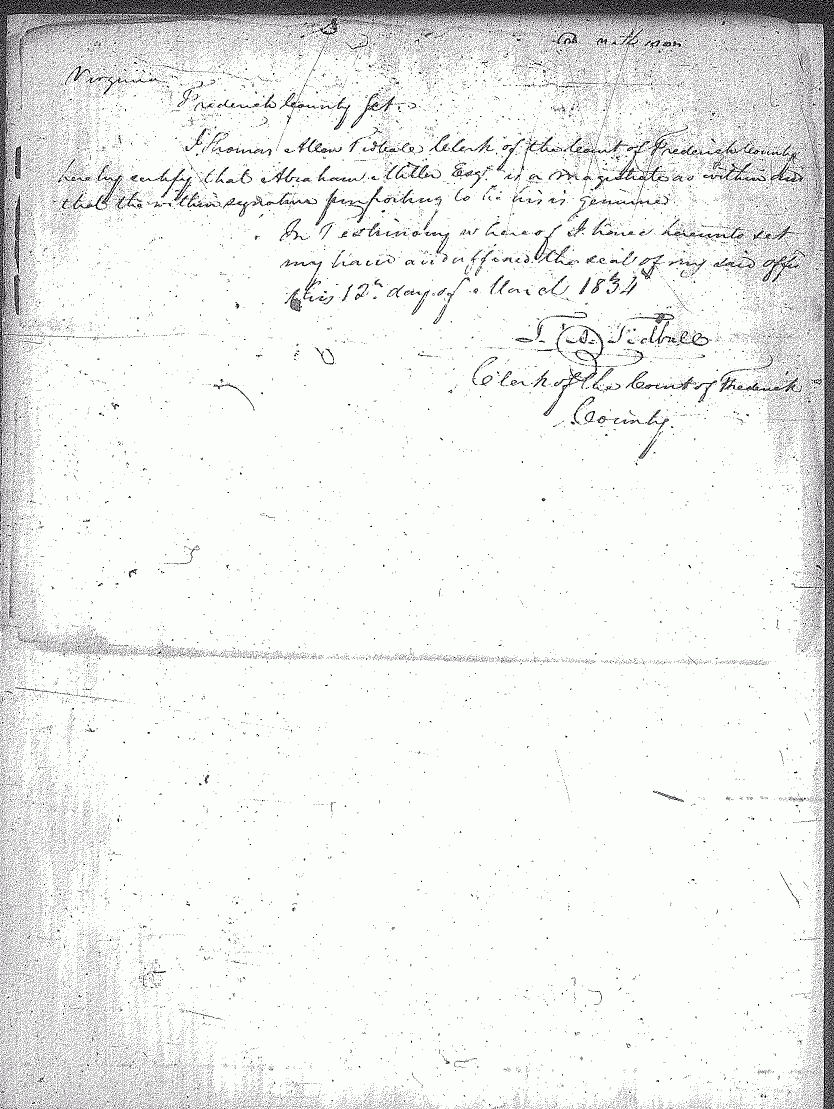 Virginia
Frederick County Sct.
I Thomas Allen Tidball Clerk of the Court of Frederick County
hereby certify that Abraham Miller Esqr. is a magistrate as within and
that the within signature purporting to be his is genuine
In Testimony whereof I have hereunto set
my hand and affixed the seal of my said office
this 12th day of March 1834
T. A. Tidball
Clerk of the Court of Frederick
County